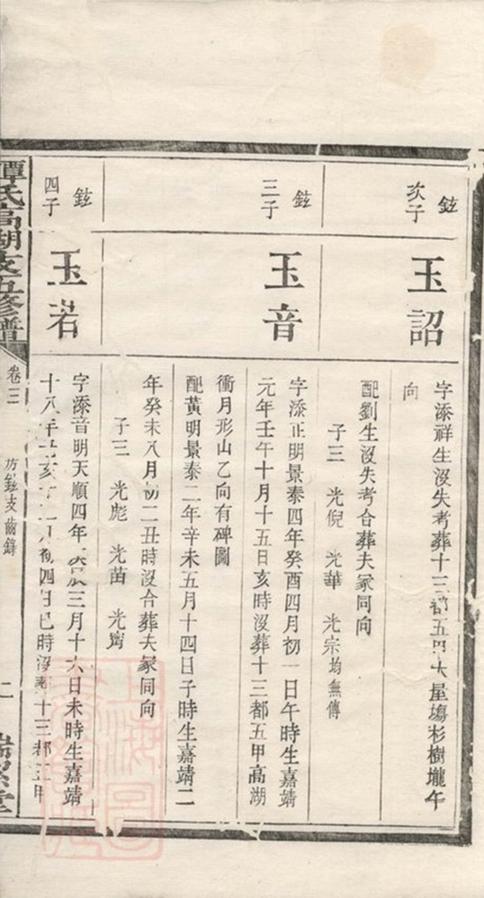 鉉次子
玉詔
字添祥生沒失考葬十三都五甲大屋塲杉樹壠午
向
配劉生沒失考合葬夫冢同向
子三 光倪 光華 光宗均無傳
鉉三子
玉音
字添正明景泰四年癸酉四月初一日午時生嘉靖
元年壬午十月十五日亥時沒葬十三都五甲高湖
衝月形山乙向有碑圖
配黃明景泰二年辛未五月十四日子時生嘉靖二
年癸未八月初二丑時沒合葬夫冢同向
子三 光彪 光苗 光寗
鉉四子
玉若
字添音明天順四年庚辰三月十六日未時生嘉靖
十八年己亥十二月初四日巳時沒葬十三都五甲
譚氏高湖支五修譜
卷三
二